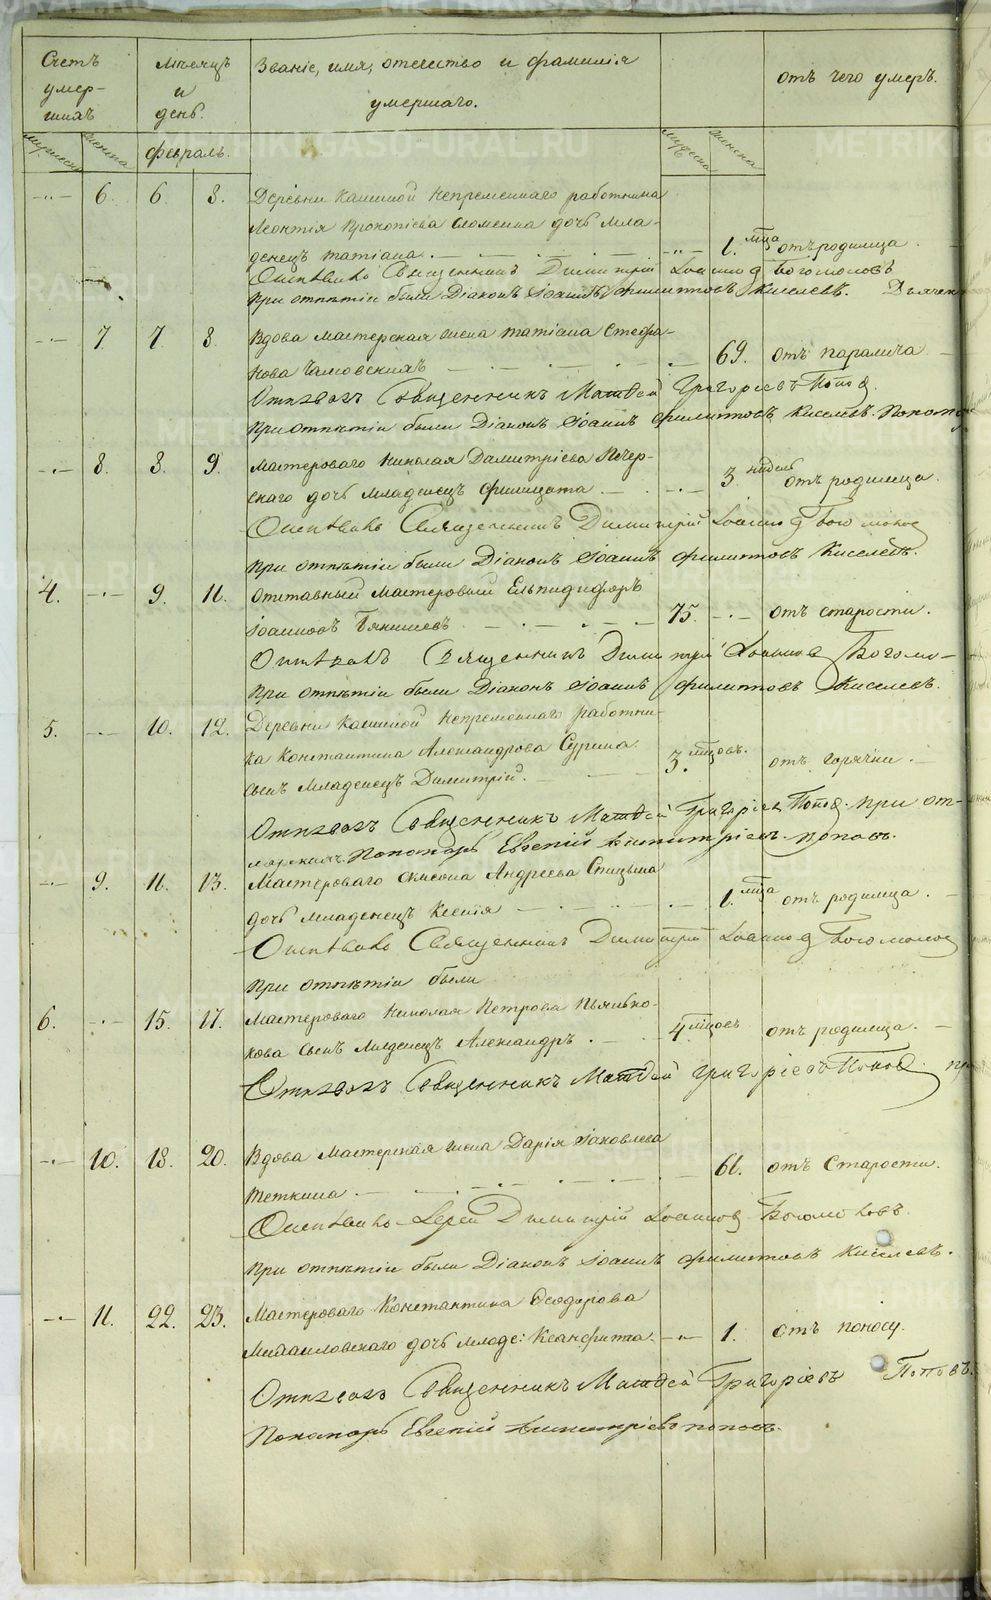 Счетъ умер-шихъ
Мѣсяцъ и день.
Званіе, имя, отчество и фамилія умершаго.
отъ чего умеръ.
мужеска женска
февраль.
мужеска женска
-"- 6. 6 8. Деревни Кашиной непременнаго работника
Леонтія Прокопіева дочь мла-
денецъ Татіана. -"- 1. мца отъ родимца.
Отпѣвалъ Священникъ Димитрій Іоанновъ Богомоловъ
При отпѣтіи были Діаконъ Іоаннъ Филипповъ Киселевъ. Дьячек
-"- 7 7. 8. Вдова мастерская жена Татіана Стефа-
нова 69. отъ паралича
Отпѣвалъ Священникъ Матвей Григорьевъ Поповъ.
При отпѣтіи были Діаконъ Іоаннъ Филипповъ Киселевъ. Поном
-"- 8. 8. 9. Мастероваго Николая Димитріева Печер-
скаго дочь младенецъ Филицата -"- 3 недель отъ родимца.
Отпѣвалъ Священникъ Димитрій Іоанновъ Богомолов
При отпѣтіи были Діаконъ Іоаннъ Филипповъ Киселевъ.
4. -"- 9. 11. Отставный мастеровый Ельпидифоръ
Іоанновъ 75. -"- отъ старости.
Отпѣвалъ Священникъ Димитрій Іоанновъ Богомо-
При отпѣтіи были Діаконъ Іоаннъ Филипповъ Киселевъ.
5. -"- 10. 12. Деревни Кашиной непременнаго работни-
ка Константина Александрова Сурина
сынъ младенецъ Димитрій. 3. мцовъ. отъ горячки.
Отпѣвалъ Священникъ Матвей Григорьев Поповъ. При от-
Пономарь Евгеній Поповъ.
-"- 9. 11. 13. Мастероваго Андреева Спицына
дочь младенецъ Ксенія -"- 1. мца отъ родимца.
Отпѣвалъ Священникъ Димитрій Іоанновъ Богомолов
При отпѣтіи были
6. -"- 15. 17. Мастероваго Николая Петрова Пьянко-
кова сынъ младенецъ Александръ. 4 мцовъ отъ родимца.
Отпѣвалъ Священникъ Матвей Григорьевъ Поповъ. пр
-"- 10. 18. 20. Вдова мастерская жена Дарія Іаковлева
Теткина 61. отъ Старости.
Отпѣвалъ Іерей Димитрій Іоанновъ Богомоловъ.
При отпѣтіи были Діаконъ Іоаннъ Филипповъ Киселевъ.
-"- 11. 22. 23. Мастероваго Константина Феодорова
Михаиловскаго дочь младе: Ксанфипа -"- 1. отъ поносу.
Отпѣвалъ Священникъ Матвей Григорьевъ Поповъ.
Пономарь Евгеній Поповъ.
METRIKI.GASO-URAL.RU